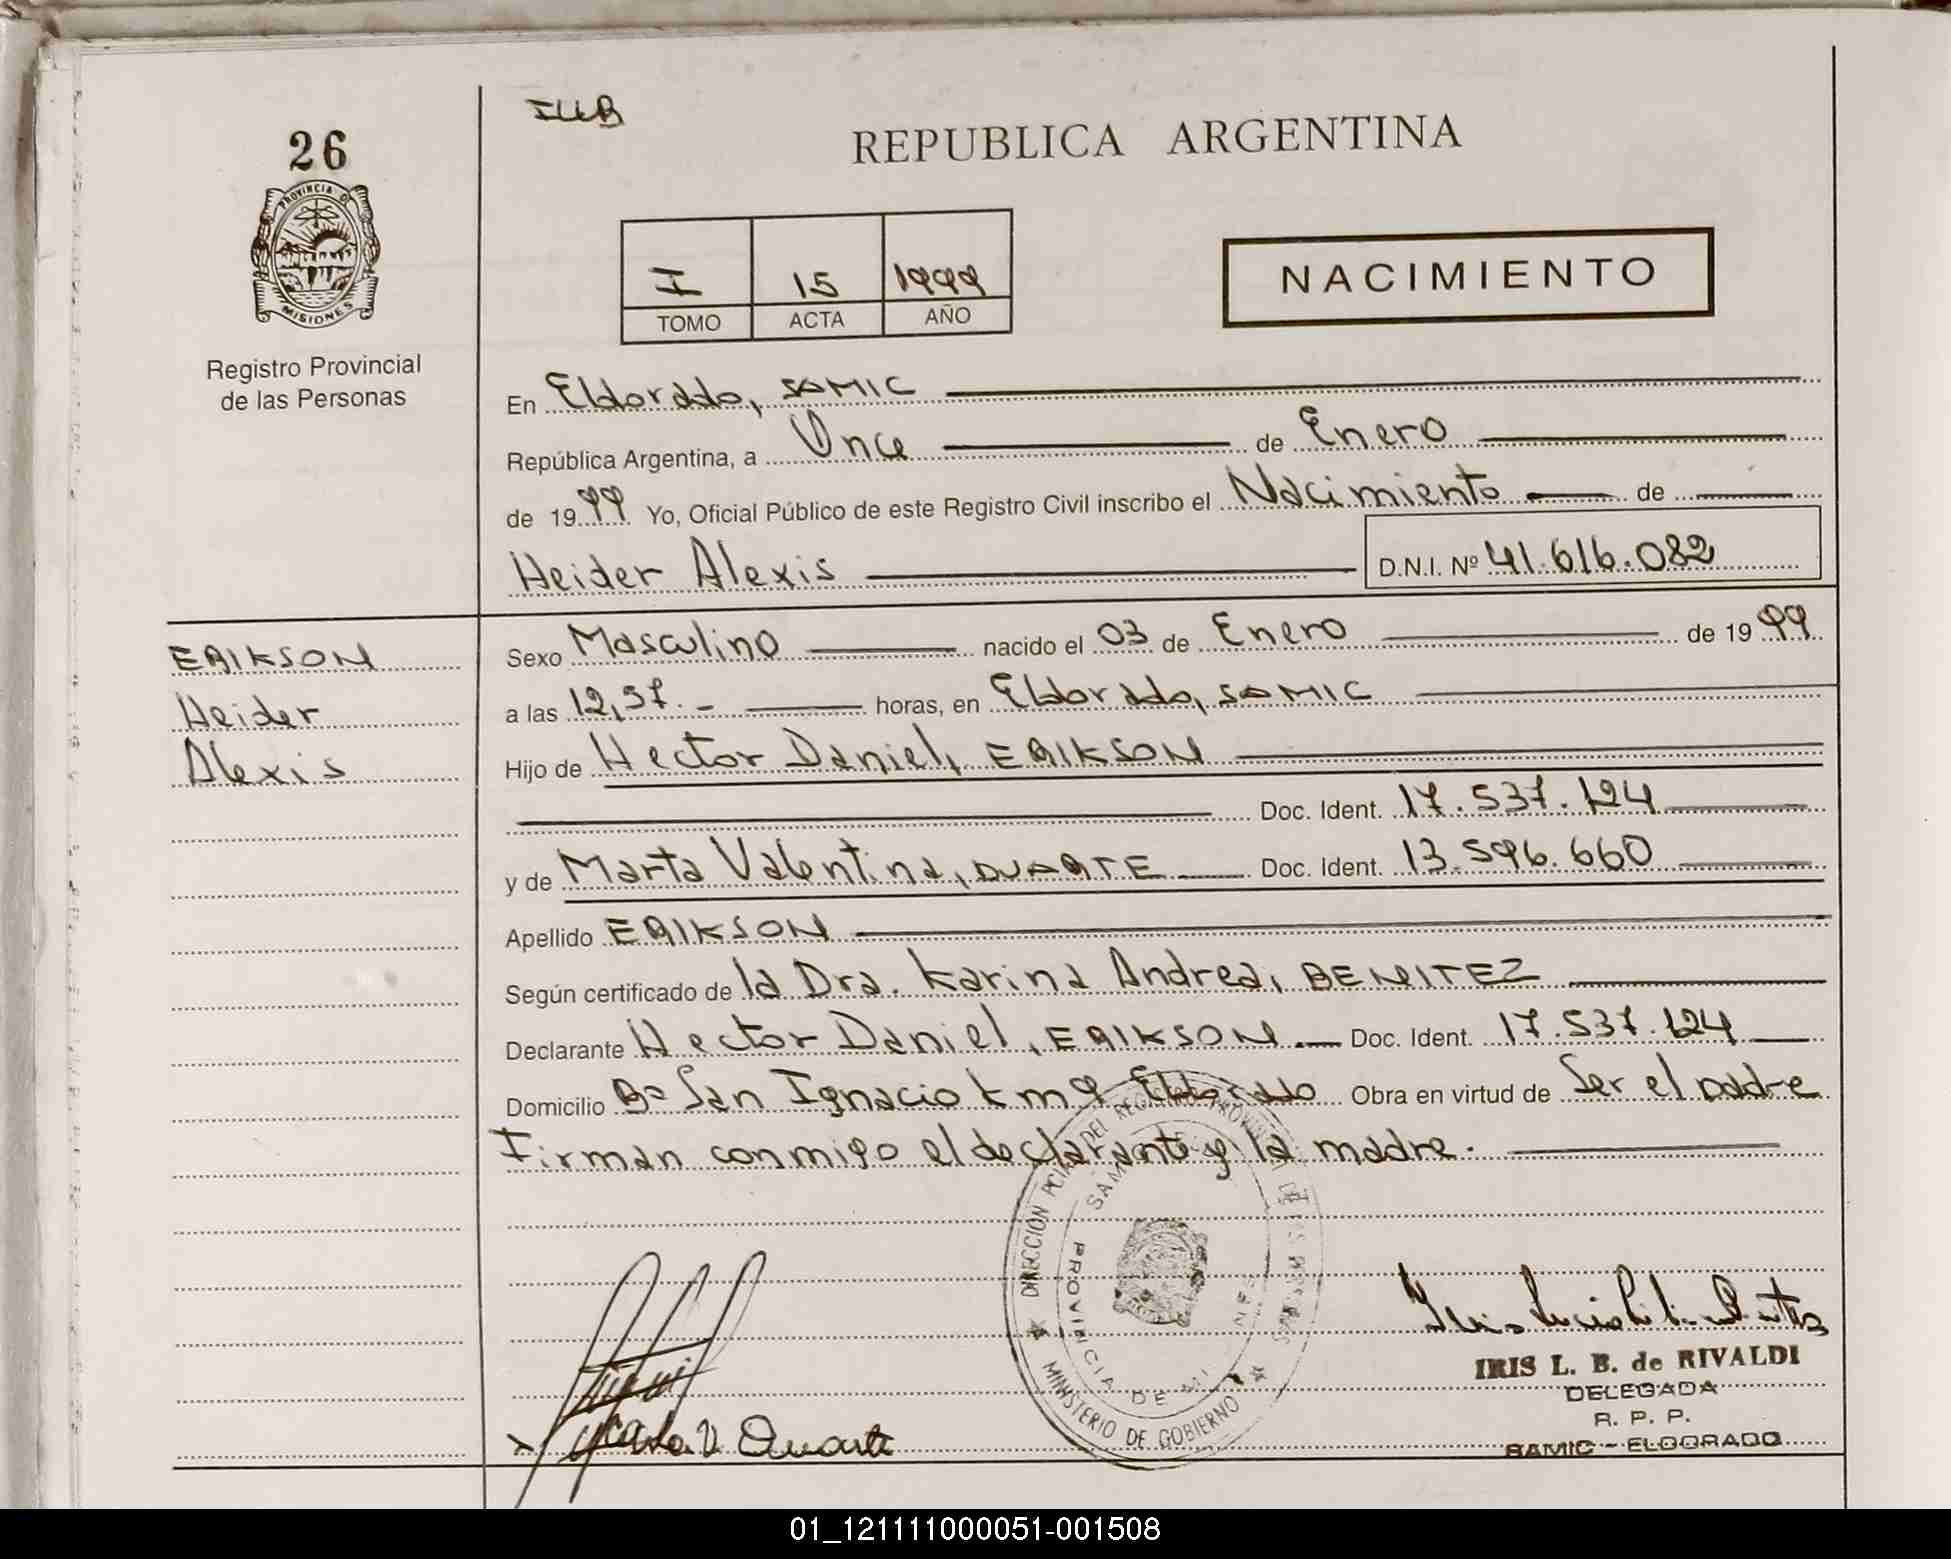 26
PROVINCIA D
MISIONES
Registro Provincial
de las Personas
REPUBLICA ARGENTINA
I 15 1999
TOMO ACTA AÑO
NACIMIENTO
En Eldorado, SAMIC
República Argentina, a Once de Enero
de 1999 Yo, Oficial Público de este Registro Civil inscribo el Nacimiento de
Heider Alexis D.N.I. Nº 41.616.082
ERIKSON
Heider
Alexis
Sexo Masculino nacido el 03 de Enero de 1999
a las 12,37.- horas, en Eldorado, SAMIC
Hijo de Hector Daniel, ERIKSON
Doc. Ident. 17.537.124
y de Marta Valentina, DUARTE Doc. Ident. 13.596.660
Apellido ERIKSON
Según certificado de la Dra. Karina Andrea, BENITEZ
Declarante Hector Daniel, ERIKSON Doc. Ident. 17.537.124
Domicilio Bº San Ignacio km 9 Eldorado Obra en virtud de Ser el padre
Firman conmigo el declarante y la madre.
DIRECCION PCIAL DEL REGISTRO
MINISTERIO DE GOBIERNO
PROVINCIA DE MI
V. Duarte
IRIS L. B. de RIVALDI
DELEGADA
R. P. P.
SAMIC - ELDORADO
01_121111000051-001508